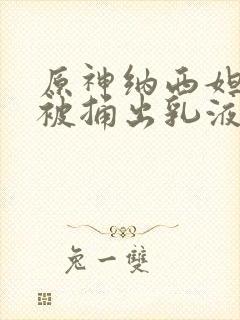 原神纳西妲
被捅出乳液
兔一雙